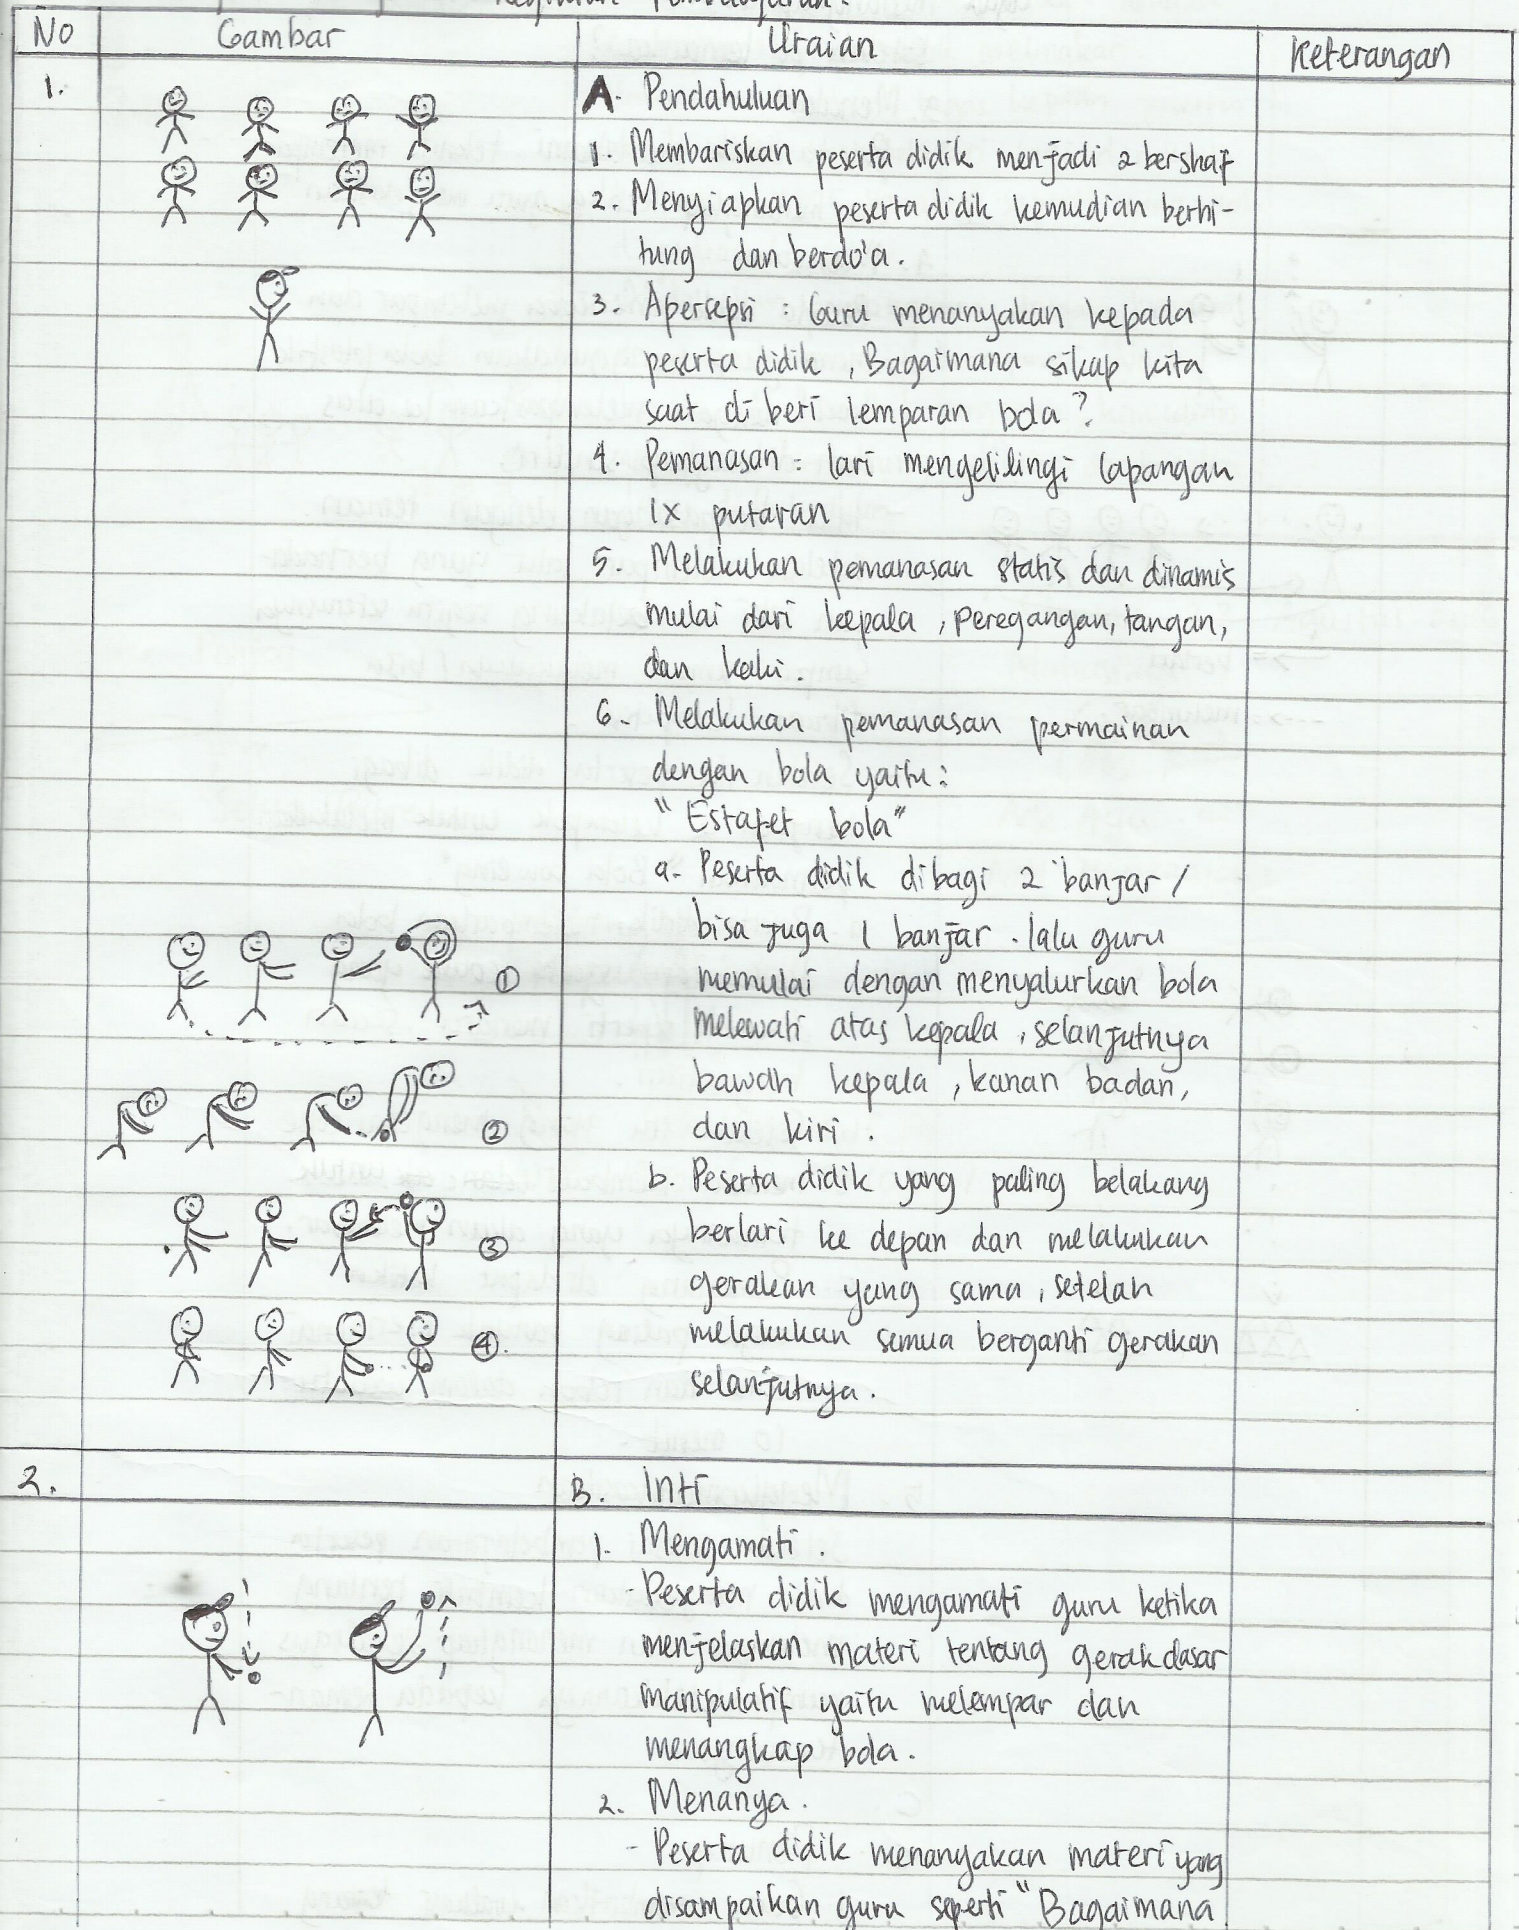 Kegiatan Pembelajaran.
No Gambar Uraian Keterangan
1.
A. Pendahuluan
1. Membariskan peserta didik menjadi 2 bershaf
2. Menyiapkan peserta didik kemudian berhi-
tung dan berdo'a.
3. Apersepsi : Guru menanyakan kepada
peserta didik, Bagaimana sikap kita
saat di beri lemparan bola?
4. Pemanasan = lari mengelilingi lapangan
1x putaran
5. Melakukan pemanasan statis dan dinamis
mulai dari kepala, peregangan, tangan,
dan kaki.
6. Melakukan pemanasan permainan
dengan bola yaitu:
"Estafet bola"
a. Peserta didik dibagi 2 banjar /
bisa juga 1 banjar. lalu guru
memulai dengan menyalurkan bola
melewati atas kepala, selanjutnya
bawah kepala, kanan badan,
dan kiri.
b. Peserta didik yang paling belakang
berlari ke depan dan melakukan
gerakan yang sama, setelah
melakukan semua berganti gerakan
selanjutnya.
1
2
3
4.
2.
B. Inti
1. Mengamati.
- Peserta didik mengamati guru ketika
menjelaskan materi tentang gerak dasar
manipulatif yaitu melempar dan
menangkap bola.
2. Menanya.
- Peserta didik menanyakan materi yang
disampaikan guru seperti "Bagaimana